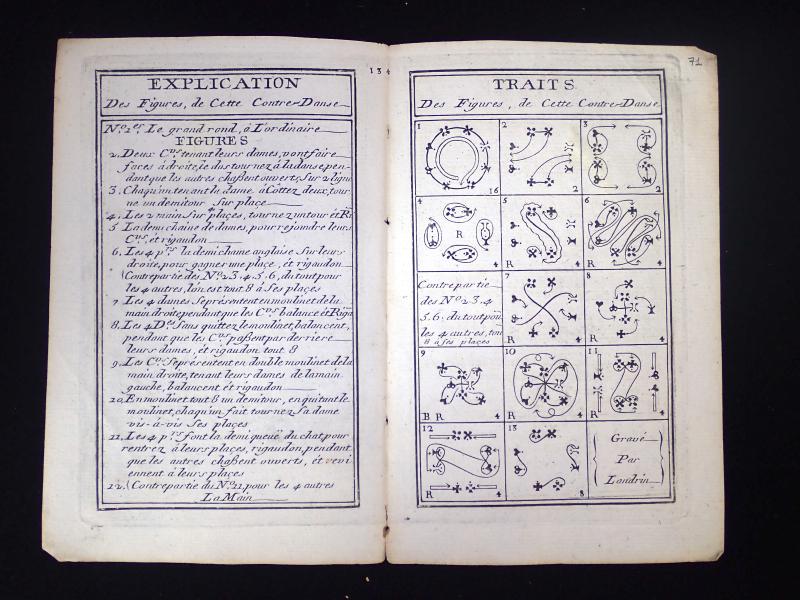 134
EXPLICATION
Des Figures, de Cette Contre-Danse
N.º 1.er Le grand rond, à L'ordinaire
FIGURES
2. Deux C.vrs tenant leurs dames, vont faire
faces à droite,
dant que les autres chaßent ouverts, Sur 2 lign
3. Chaqu'un tenant la dame à Cottez deux, tour
ne un demitour Sur place
4. Les 2 main Sur places, tournez un tour et Ri
5 La demi chaine de dames, pour rejoindre leurs
C.vrs, et rigaudon
6. Les 4 p.rs la demi chaine anglaise Sur leurs
droite, pour gagner une plaçe, et rigaudon
Contrepartie des N.º 2.3.4.5.6, du tout pour
les 4 autres, l'on est tout 8 à Ses plaçes
7. Les 4 dames Se présentent en moulinet de la
main droite pendant que les C.vrs balance et Riga
8. Les 4 D.es Sans quittez le moulinet, balancent,
pendant que les C.vrs paßent par derriere
leurs dames, et rigaudon tout 8
9. Les C.vrs Se présentent en double moulinet de la
main droite, tenant leurs dames de la main
gauche, balancent et rigaudon
10. En moulinet, tout 8 un demitour, en quitant le
moulinet, chaqu'un fait tournez Sa dame
vis-à-vis Ses plaçes
11. Les 4 p.rs font la demi queuë du chat, pour
rentrez à leurs plaçes, rigaudon, pendant
que les autres chaßent ouverts, et revi
ennent à leurs plaçes
12. Contrepartie du N.º 11, pour les 4 autres
La Main
71
TRAITS
Des Figures, de Cette Contre-Danse
1 16
2 2
3 2
4 R 4
5 R 4
6 R 4
Contrepartie
des N.º 2.3.4
5.6. du tout pour
les 4 autres, tou
8 à Ses plaçes
7 R 4
8 R 4
9 B R 4
10 R 4
11 R 4
12 R 4
13 8
Gravé
Par
Landrin